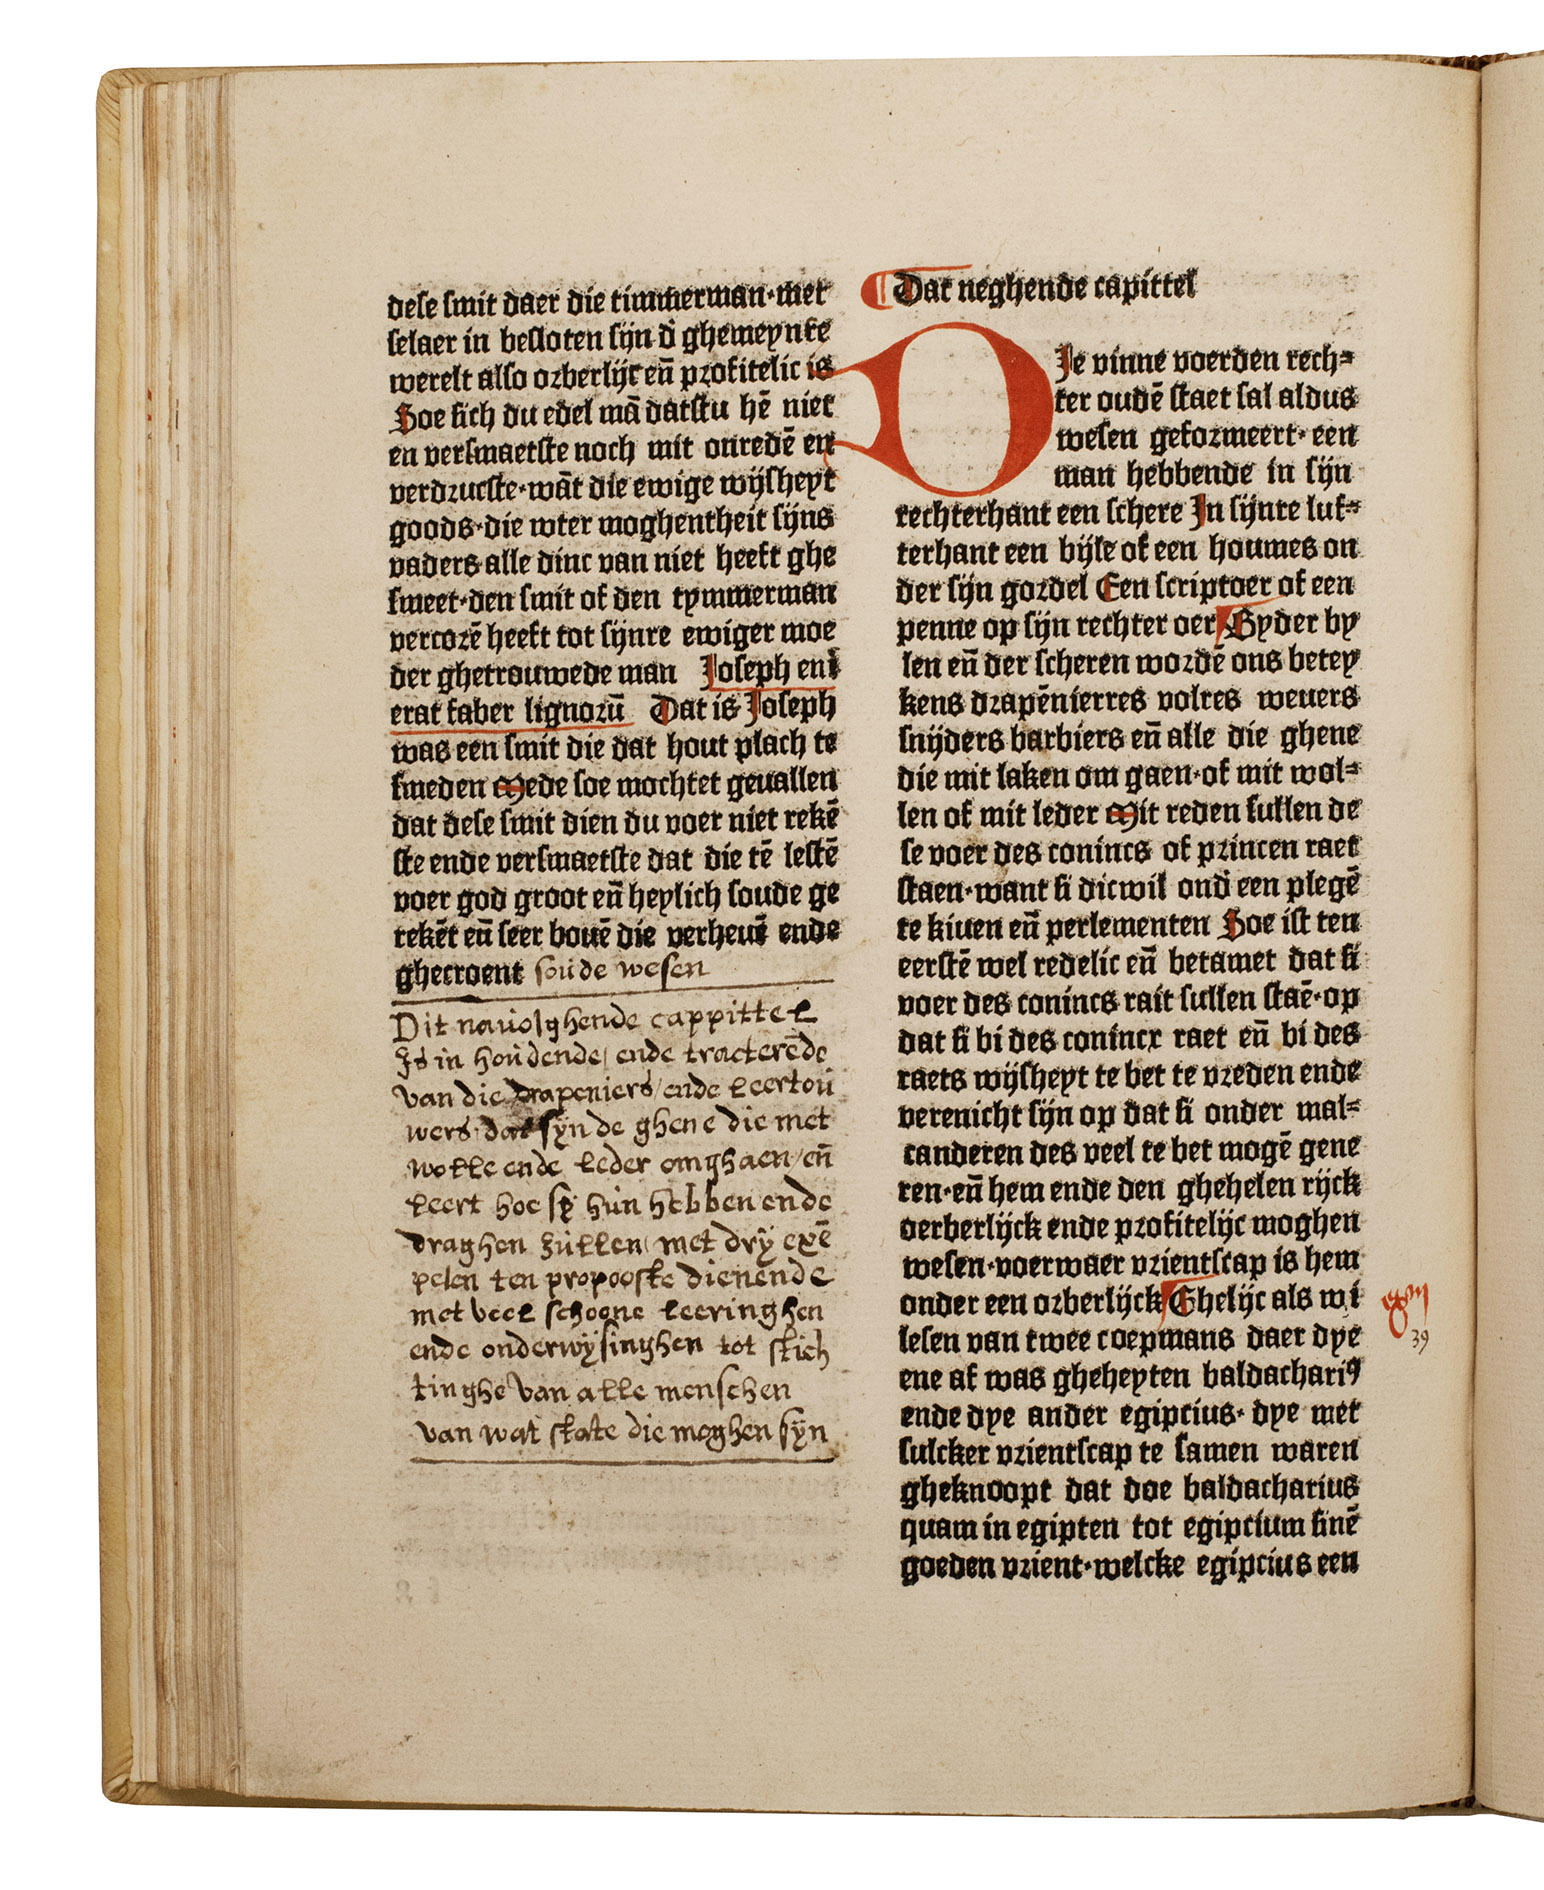 dese smit daer die timmerman·met
selaer in besloten sijn d̕ ghemeynte
werelt also orberlijc en̄ profitelic is
Hoe sich du edel mā datstu hē niet
en versmaetste noch mit onredē en
verdrucste·wāt die ewige wijsheyt
goods·die wter moghentheit sijns
vaders alle dinc van niet heeft ghe
smeet·den smit of den tymmerman
vercorē heeft tot sijnre ewiger moe
der ghetrouwede man Joseph eni
erat faber lignorū Dat is Joseph
was een smit die dat hout plach te
smeden Mede soe mochtet geuallen
dat dese smit dien du voer niet rekē
ste ende versmaetste dat die tē lestē
voer god groot en̄ heylich soude ge
rekēt en̄ seer bouē die verheuē ende
ghecroent soude wesen
Dit nauolghende cappittel
Is in houdende/ ende tracterēde
van die drapeniers/ ende leertou
wers·dat sÿn de ghene die met
wolle ende leder omghaen/ en̄
leert hoe sÿ hun hebben ende
draghen zullen/ met drÿ exē
pelen ten propooste dienende
met veel schoone leeringhen
ende onderwÿsinghen tot stich
tinghe van alle menschen
van wat state die moghen sÿn
Dat neghende capittel
DJe vinne voerden rech⸗
ter oudē staet sal aldus
wesen geformeert·een
man hebbende in sijn
rechterhant een schere In sijnre luf⸗
terhant een bijle of een houmes on
der sijn gordel Een scriptoer of een
penne op sijn rechter oer Byder by
len en̄ der scheren wordē ons betey
kens drapēnierres volres weuers
snijders barbiers en̄ alle die ghene
die mit laken om gaen·of mit wol⸗
len of mit leder Mit reden sullen de
se voer des conincs of princen raet
staen·want si dicwil ond̕ een plegē
te kiuen en̄ perlementen Hoe ist ten
eerstē wel redelic en̄ betamet dat si
voer des conincs rait sullen staē·op
dat si bi des conincx raet en̄ bi des
raets wijsheyt te bet te vreden ende
verenicht sijn op dat si onder mal⸗
canderen des veel te bet mogē gene
ren·en̄ hem ende den ghehelen rijck
oerberlijck ende profitelijc moghen
wesen·voerwaer vrientscap is hem
onder een orberlijck Ghelijc als wi
lesen van twee coepmans daer dye
ene af was gheheyten baldachariꝰ
ende dye ander egipcius· dye met
sulcker vrientscap te samen waren
gheknoopt dat doe baldacharius
quam in egipten tot egipcium sinē
goeden vrient·welcke egipcius een
39